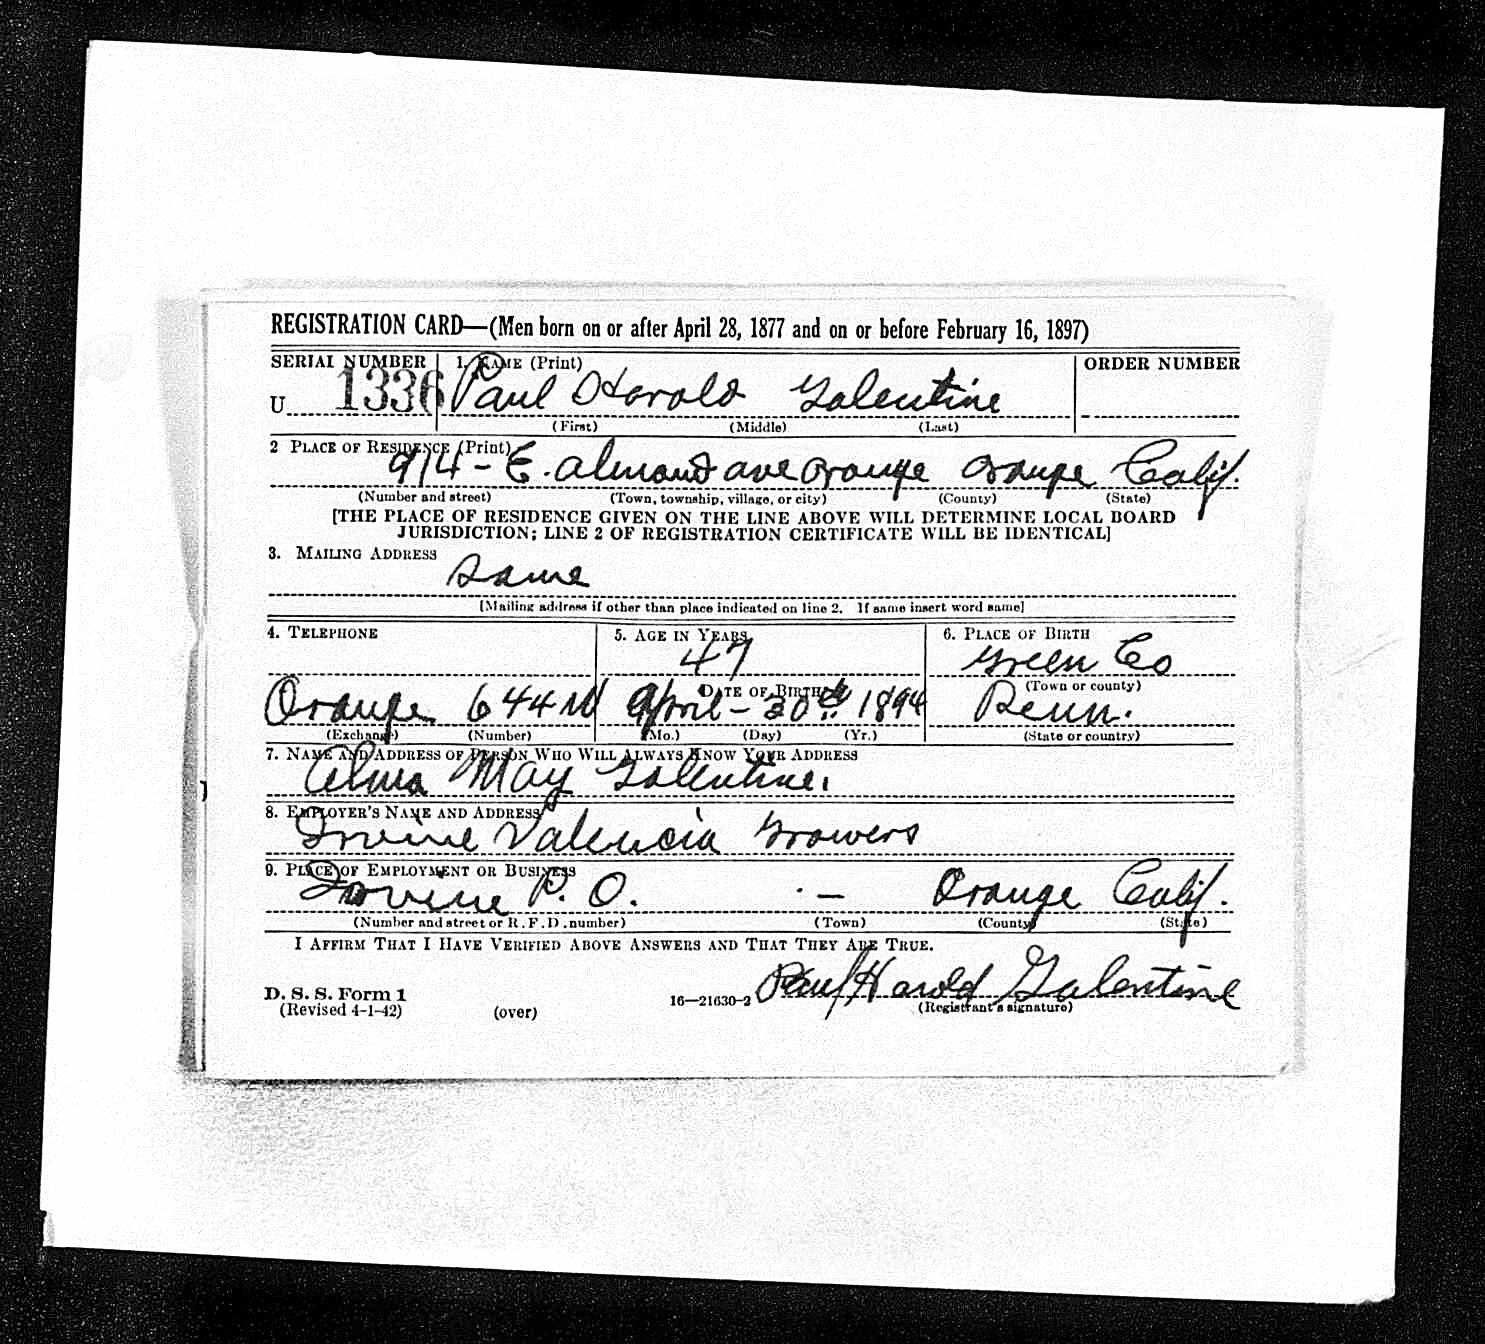 REGISTRATION CARD—(Men born on or after April 28, 1877 and on or before February 16, 1897)
SERIAL NUMBER 1. NAME (Print) ORDER NUMBER
U 1336 Paul Harold Galentine
(First) (Middle) (Last)
2 PLACE OF RESIDENCE (Print)
914 - E. almond ave Orange Orange Calif.
(Number and street) (Town, township, village, or city) (County) (State)
[THE PLACE OF RESIDENCE GIVEN ON THE LINE ABOVE WILL DETERMINE LOCAL BOARD
JURISDICTION; LINE 2 OF REGISTRATION CERTIFICATE WILL BE IDENTICAL]
3. MAILING ADDRESS
Same
[Mailing address if other than place indicated on line 2. If same insert word same]
4. TELEPHONE 5. AGE IN YEARS 6. PLACE OF BIRTH
47 Green Co
DATE OF BIRTH (Town or county)
Orange 644 W April - 30th 1894 Penn.
(Exchange) (Number) (Mo.) (Day) (Yr.) (State or country)
7. NAME AND ADDRESS OF PERSON WHO WILL ALWAYS KNOW YOUR ADDRESS
Alma May Galentine.
8. EMPLOYER'S NAME AND ADDRESS
Irvine Valencia Growers
9. PLACE OF EMPLOYMENT OR BUSINESS
Irvine P. O. - Orange Calif.
(Number and street or R. F. D. number) (Town) (County) (State)
I AFFIRM THAT I HAVE VERIFIED ABOVE ANSWERS AND THAT THEY ARE TRUE.
Paul Harold Galentine
D. S. S. Form 1 16—21630-2 (Registrant's signature)
(Revised 4-1-42) (over)